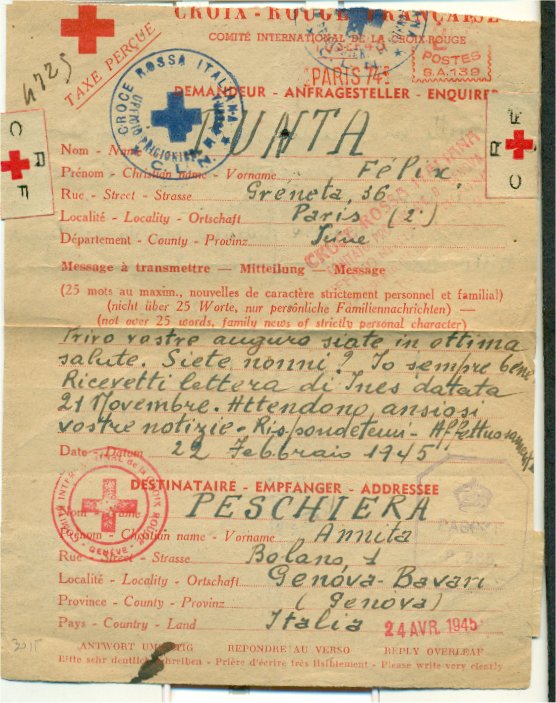 CROIX-ROUGE FRANÇAISE
COMITÉ INTERNATIONAL DE LA CROIX-ROUGE
4725
TAXE PERÇUE
PARIS 74
POSTES
S.A.139
CROCE ROSSA ITALIANA
UFFICIO PRIGIONIERI
C.L.N.
DEMANDEUR - ANFRAGESTELLER - ENQUIRER
C R F
C R F
Nom - Name PUNTA
Prénom - Christian name - Vorname Félix
Rue - Street - Strasse Greneta, 36
Localité - Locality - Ortschaft Paris (2)
Département - County - Provinz
CROCE ROSSA ITALIANA
Message à transmettre — Mitteilung — Message
(25 mots au maxim., nouvelles de caractère strictement personnel et familial)
(nicht über 25 Worte, nur persönliche Familiennachrichten) —
(not over 25 words, family news of strictly personal character)
vostre auguro siate in ottima
salute. Siete nonni? Io sempre bene
Ricevetti lettera di Ines datata
21 Novembre. Attendono ansiosi
vostre notizie - Rispondetemi - Affettuosamente
Date - Datum 22 Febbraio 1945
COMITÉ INTERNATIONAL de la CROIX ROUGE
GENÈVE
DESTINATAIRE - EMPFANGER - ADDRESSEE
Nom - Name PESCHIERA
Prénom - Christian name - Vorname Annita
Rue - Street - Strasse Bolano, 1
Localité - Locality - Ortschaft Genova-Bavari
Province - County - Provinz (Genova)
Pays - Country - Land Italia
24 AVR. 1945
ANTWORT UMSEITIG REPONDRE AU VERSO REPLY OVERLEAF
Bitte sehr deutlich schreiben - Prière d'écrire très lisiblement - Please write very clearly